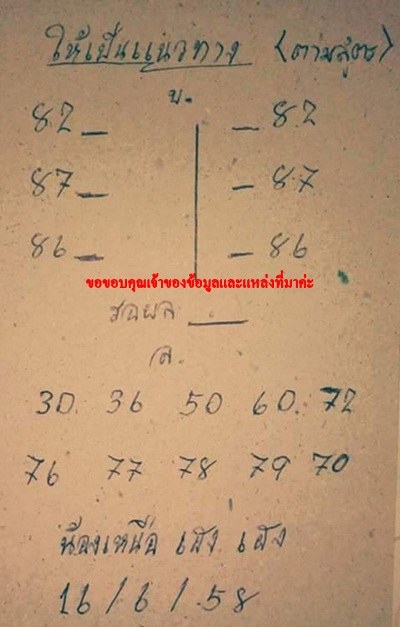 ให้เป็นแนวทาง (ตามสูตร)
บ.
82_ _82
87_ _87
86_ _86
ขอขอบคุณเจ้าของข้อมูลและแหล่งที่มาค่ะ
รอผล ___
ล.
30. 36 50 60. 72
76 77 78 79 70
น้องเหนือ เฮง เฮง
16/6/58